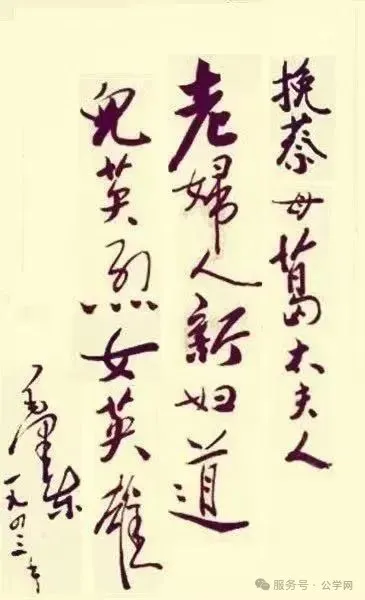 挽蔡母葛太夫人
老婦人新妇道
兒英烈女英雄
毛澤东
一九四三年
服务号·公学网